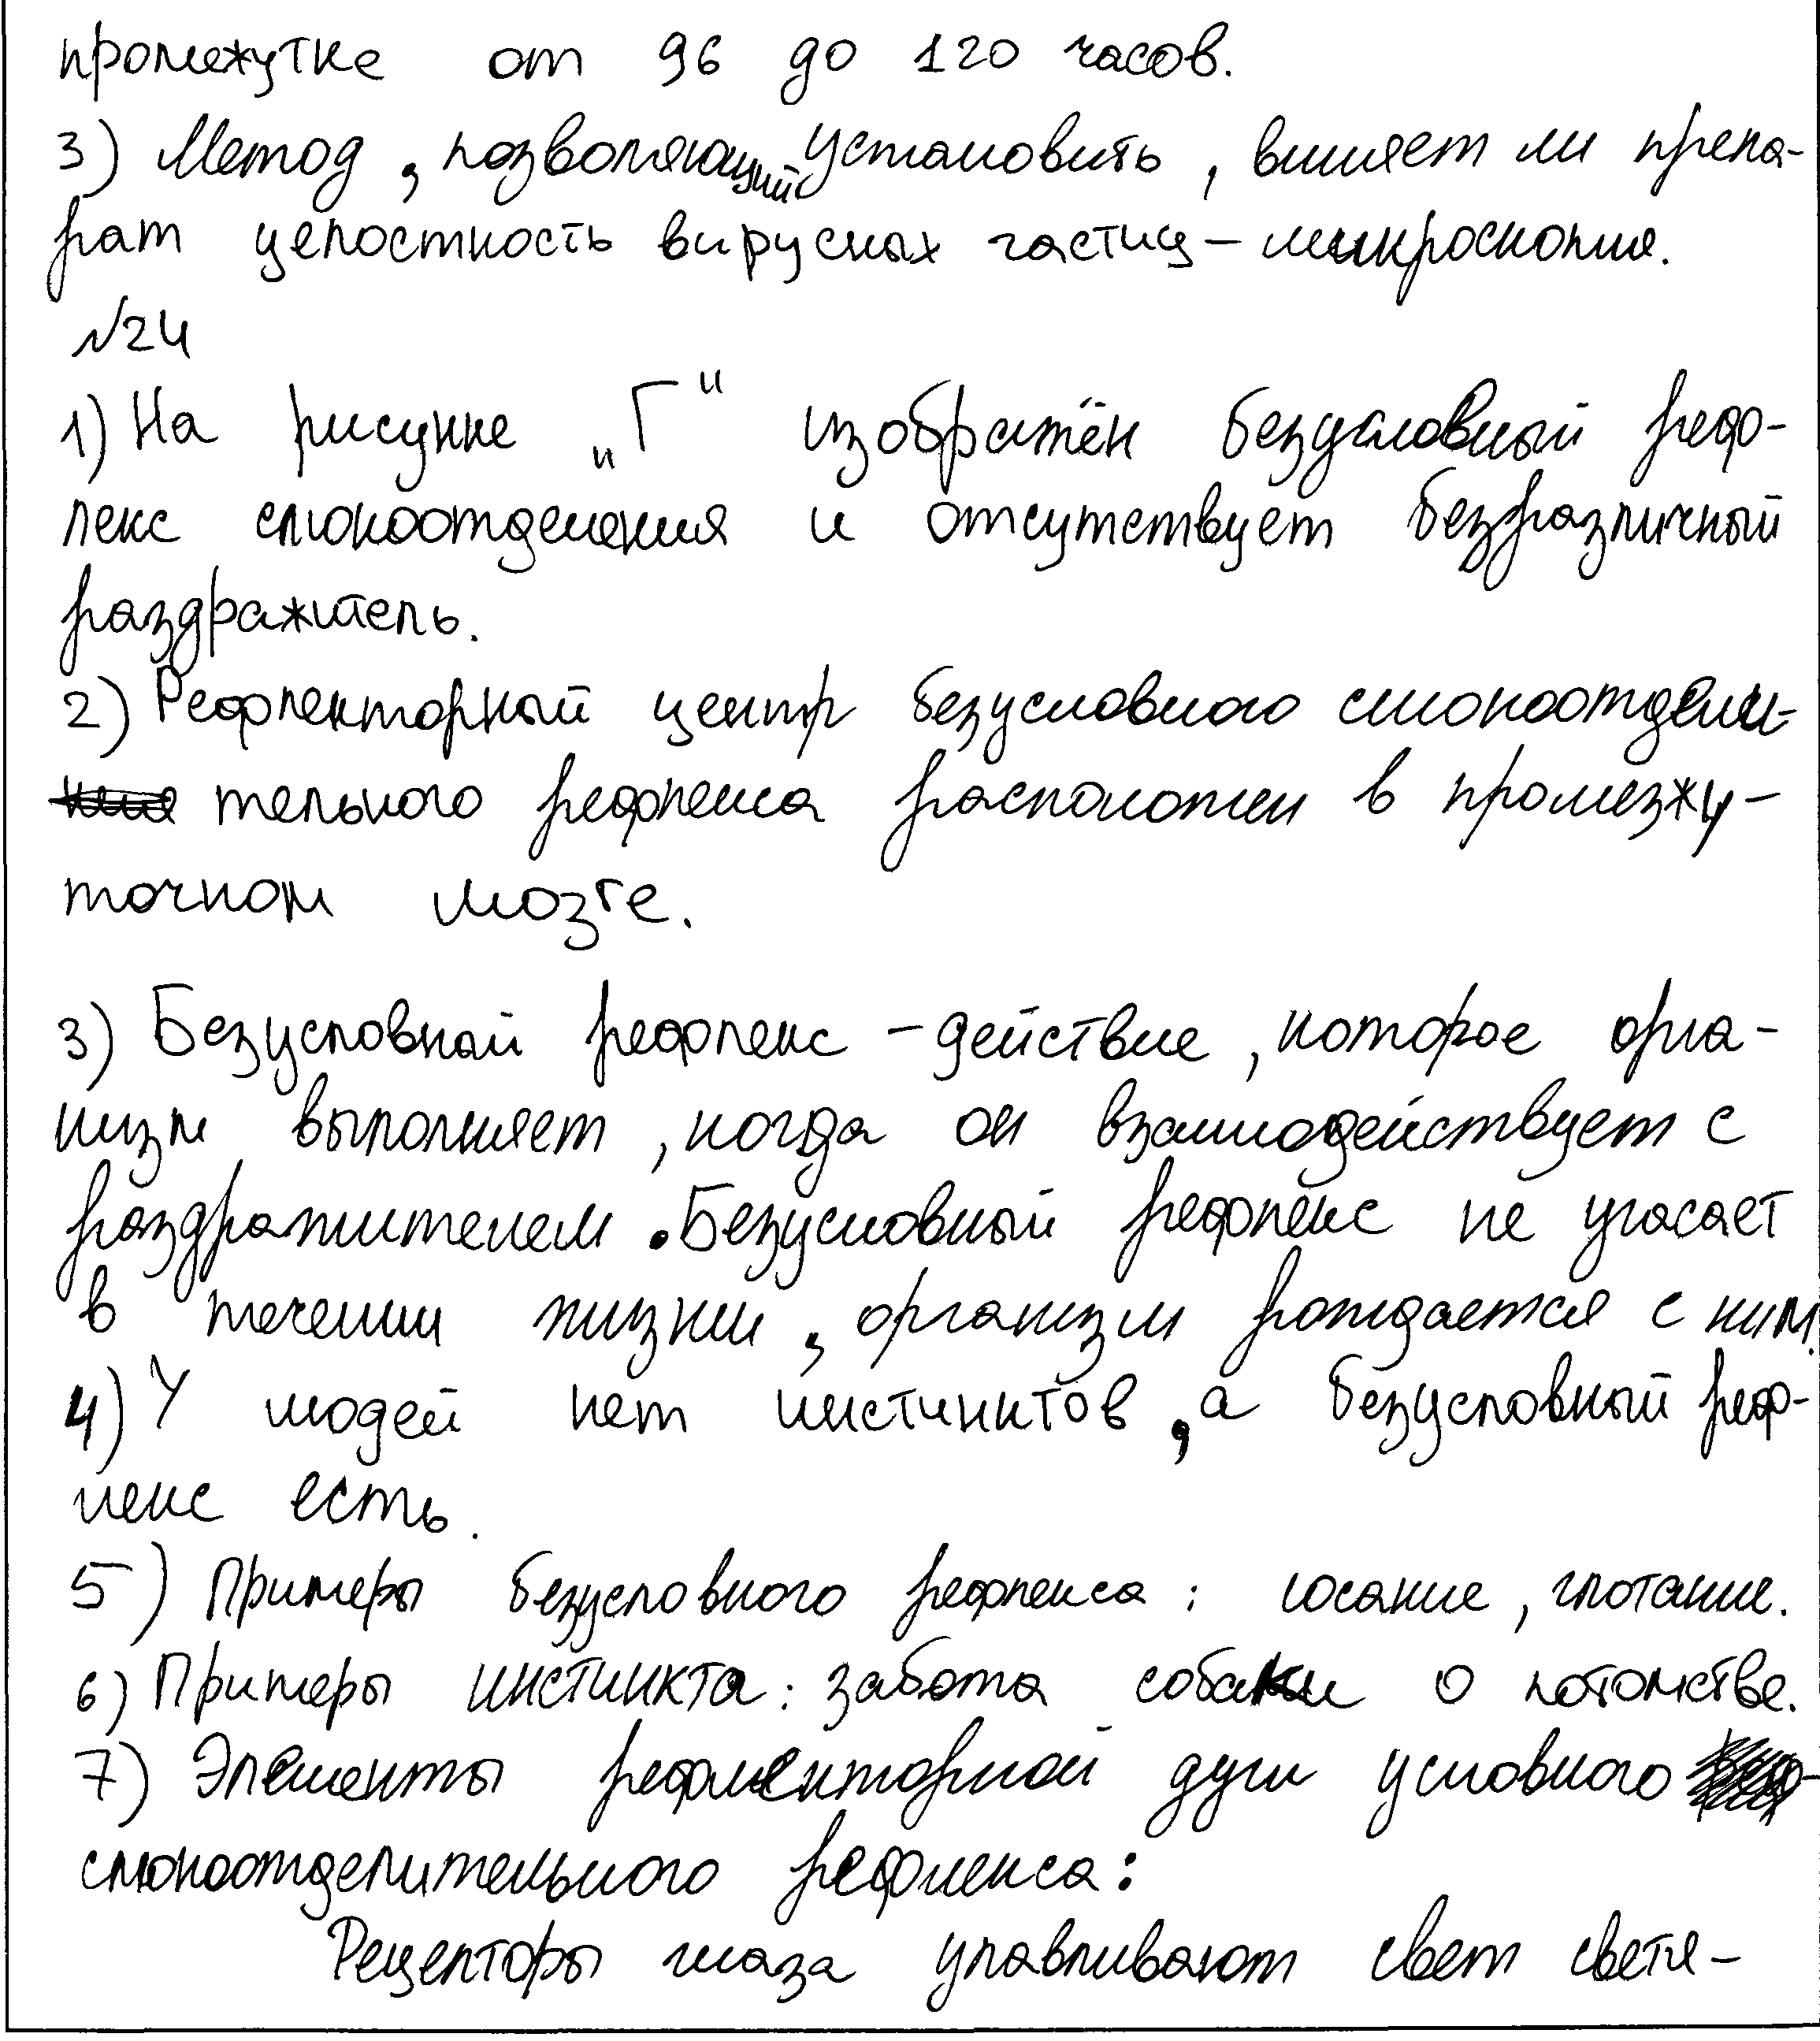 промежутке от 96 до 120 часов.
3) Метод, позволяющий установить, влияет ли препа-
рат целостность вирусных частиц – микроскопия.
№24
1) На рисунке „Г" изображён безусловный реф-
лекс слюноотделения и отсутствует безразличный
раздражитель.
2) Рефлекторный центр безусловного слюноотдели-
тельного рефлекса расположен в промезжу-
точном мозге.
3) Безусловный рефлекс – действие, которое орга-
низм выполняет, когда он взаимодействует с
раздражителем. Безусловный рефлекс не угасает
в течении жизни, организм рождается с ним.
4) У людей нет инстинктов, а безусловный реф-
лекс есть.
5) Примеры безусловного рефлекса: сосание, глотание.
6) Примеры инстинкта: забота собаки о потомстве.
7) Элементы рефлекторной дуги условного
слюноотделительного рефлекса:
Рецепторы глаза улавливают свет светя-